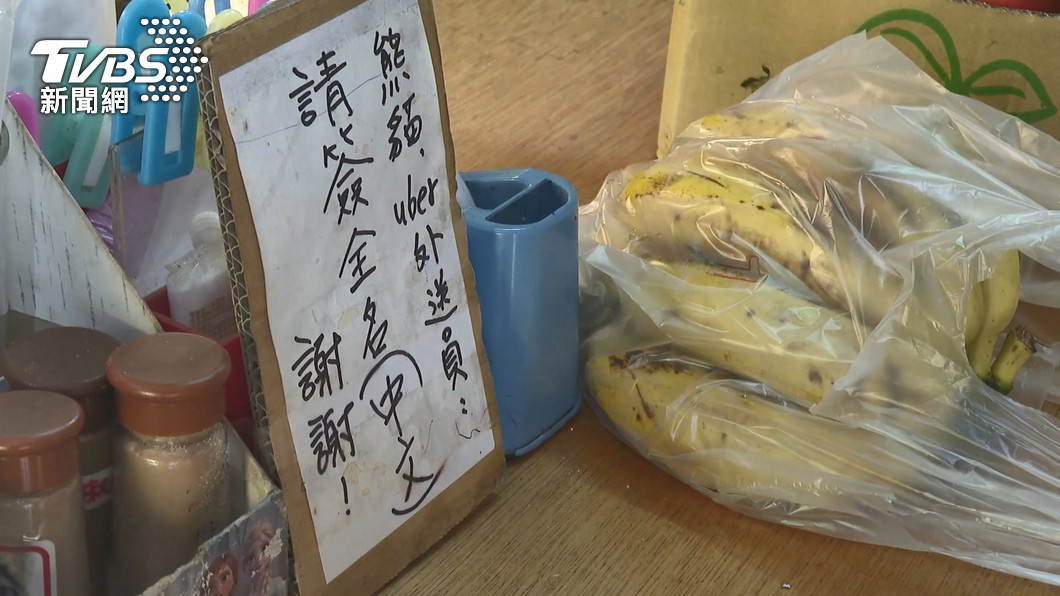 TVBS
新聞網
熊貓、uber外送員：
請簽全名(中文)
謝謝！